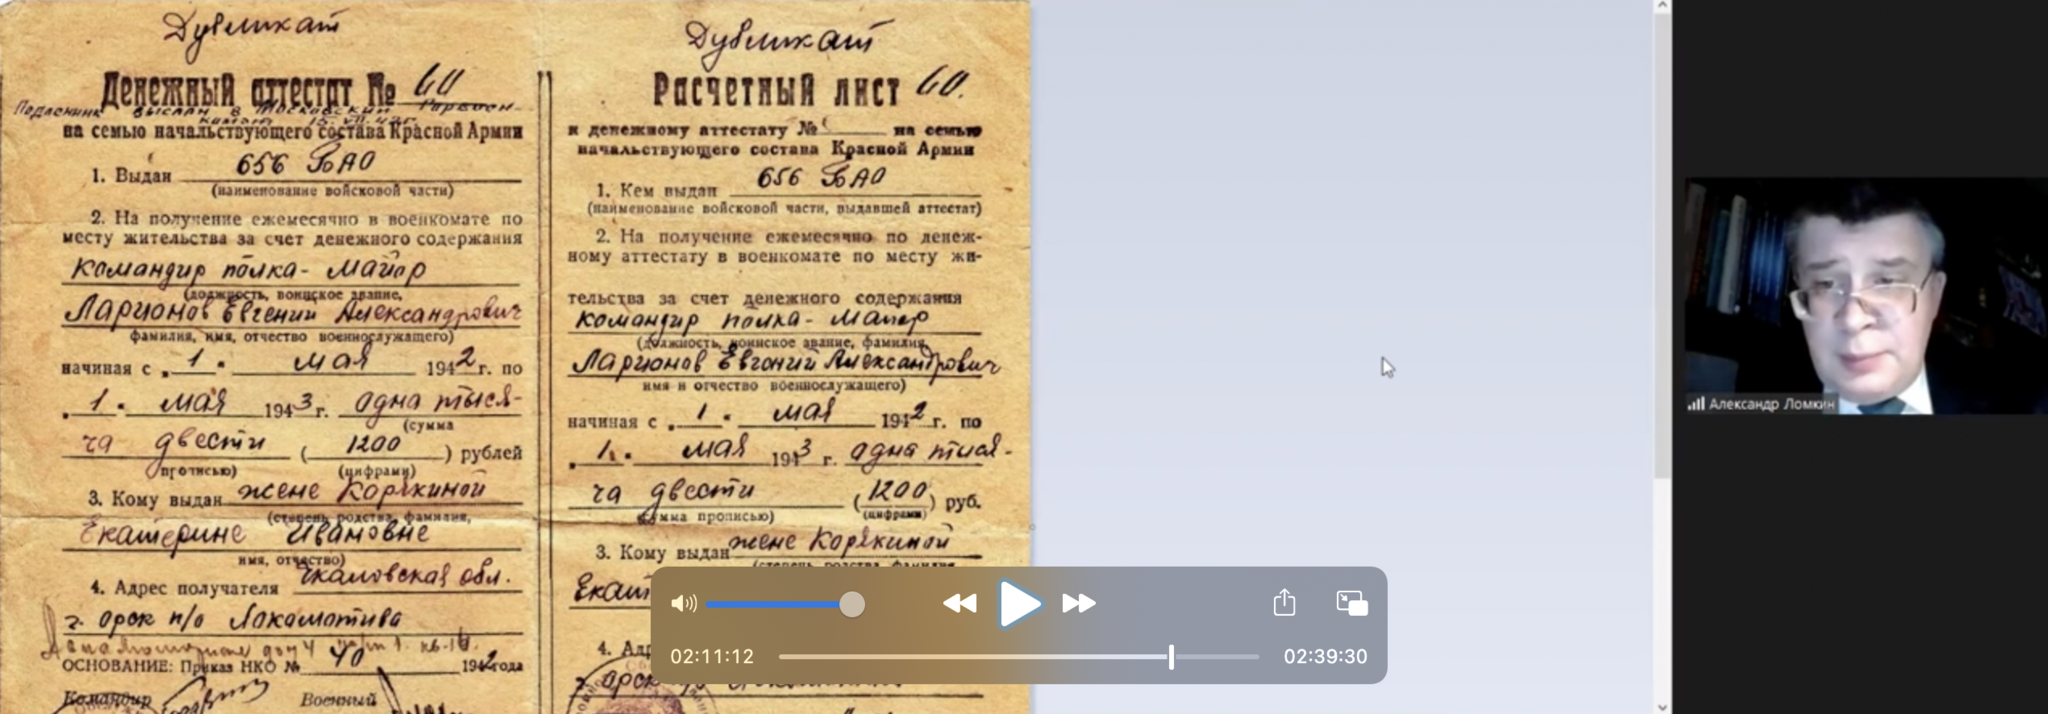 Дубликат
Денежный аттестат № 60
Подлинник выслан в Московский Горвоен-
комат 15.VII.42г.
на семью начальствующего состава Красной Армии
1. Выдан 656 БАО
(наименование войсковой части)
2. На получение ежемесячно в военкомате по
месту жительства за счет денежного содержания
Командир полка - майор
(должность, воинское звание,
Ларионов Евгений Александрович
фамилия, имя, отчество военнослужащего)
начиная с „1" мая 1942 г. по
„1" мая 1943 г. одна тыся-
(сумма
ча двести (1200) рублей
прописью) (цифрами)
3. Кому выдан жене Корякиной
(степень родства, фамилия,
Екатерине Ивановне
имя, отчество)
4. Адрес получателя Чкаловская обл.
г. Орск п/о Локомотива
дом 4 кв. 14.
ОСНОВАНИЕ: Приказ НКО № 40 1942 года
Командир Военный
Дубликат
Расчетный лист 60.
к денежному аттестату № на семью
начальствующего состава Красной Армии
1. Кем выдан 656 БАО
(наименование войсковой части, выдавшей аттестат)
2. На получение ежемесячно по денеж-
ному аттестату в военкомате по месту жи-
тельства за счет денежного содержания
Командир полка - майор
(должность, воинское звание, фамилия,
Ларионов Евгений Александрович
имя и отчество военнослужащего)
начиная с „1" мая 1942 г. по
„1" мая 1943 г. одна тыся-
ча двести (1200) руб.
(сумма прописью) (цифрами)
3. Кому выдан жене Корякиной
(степень родства, фамилия
Екат
4. Адр
г. Орск п/о
02:11:12
02:39:30
Александр Ломкин